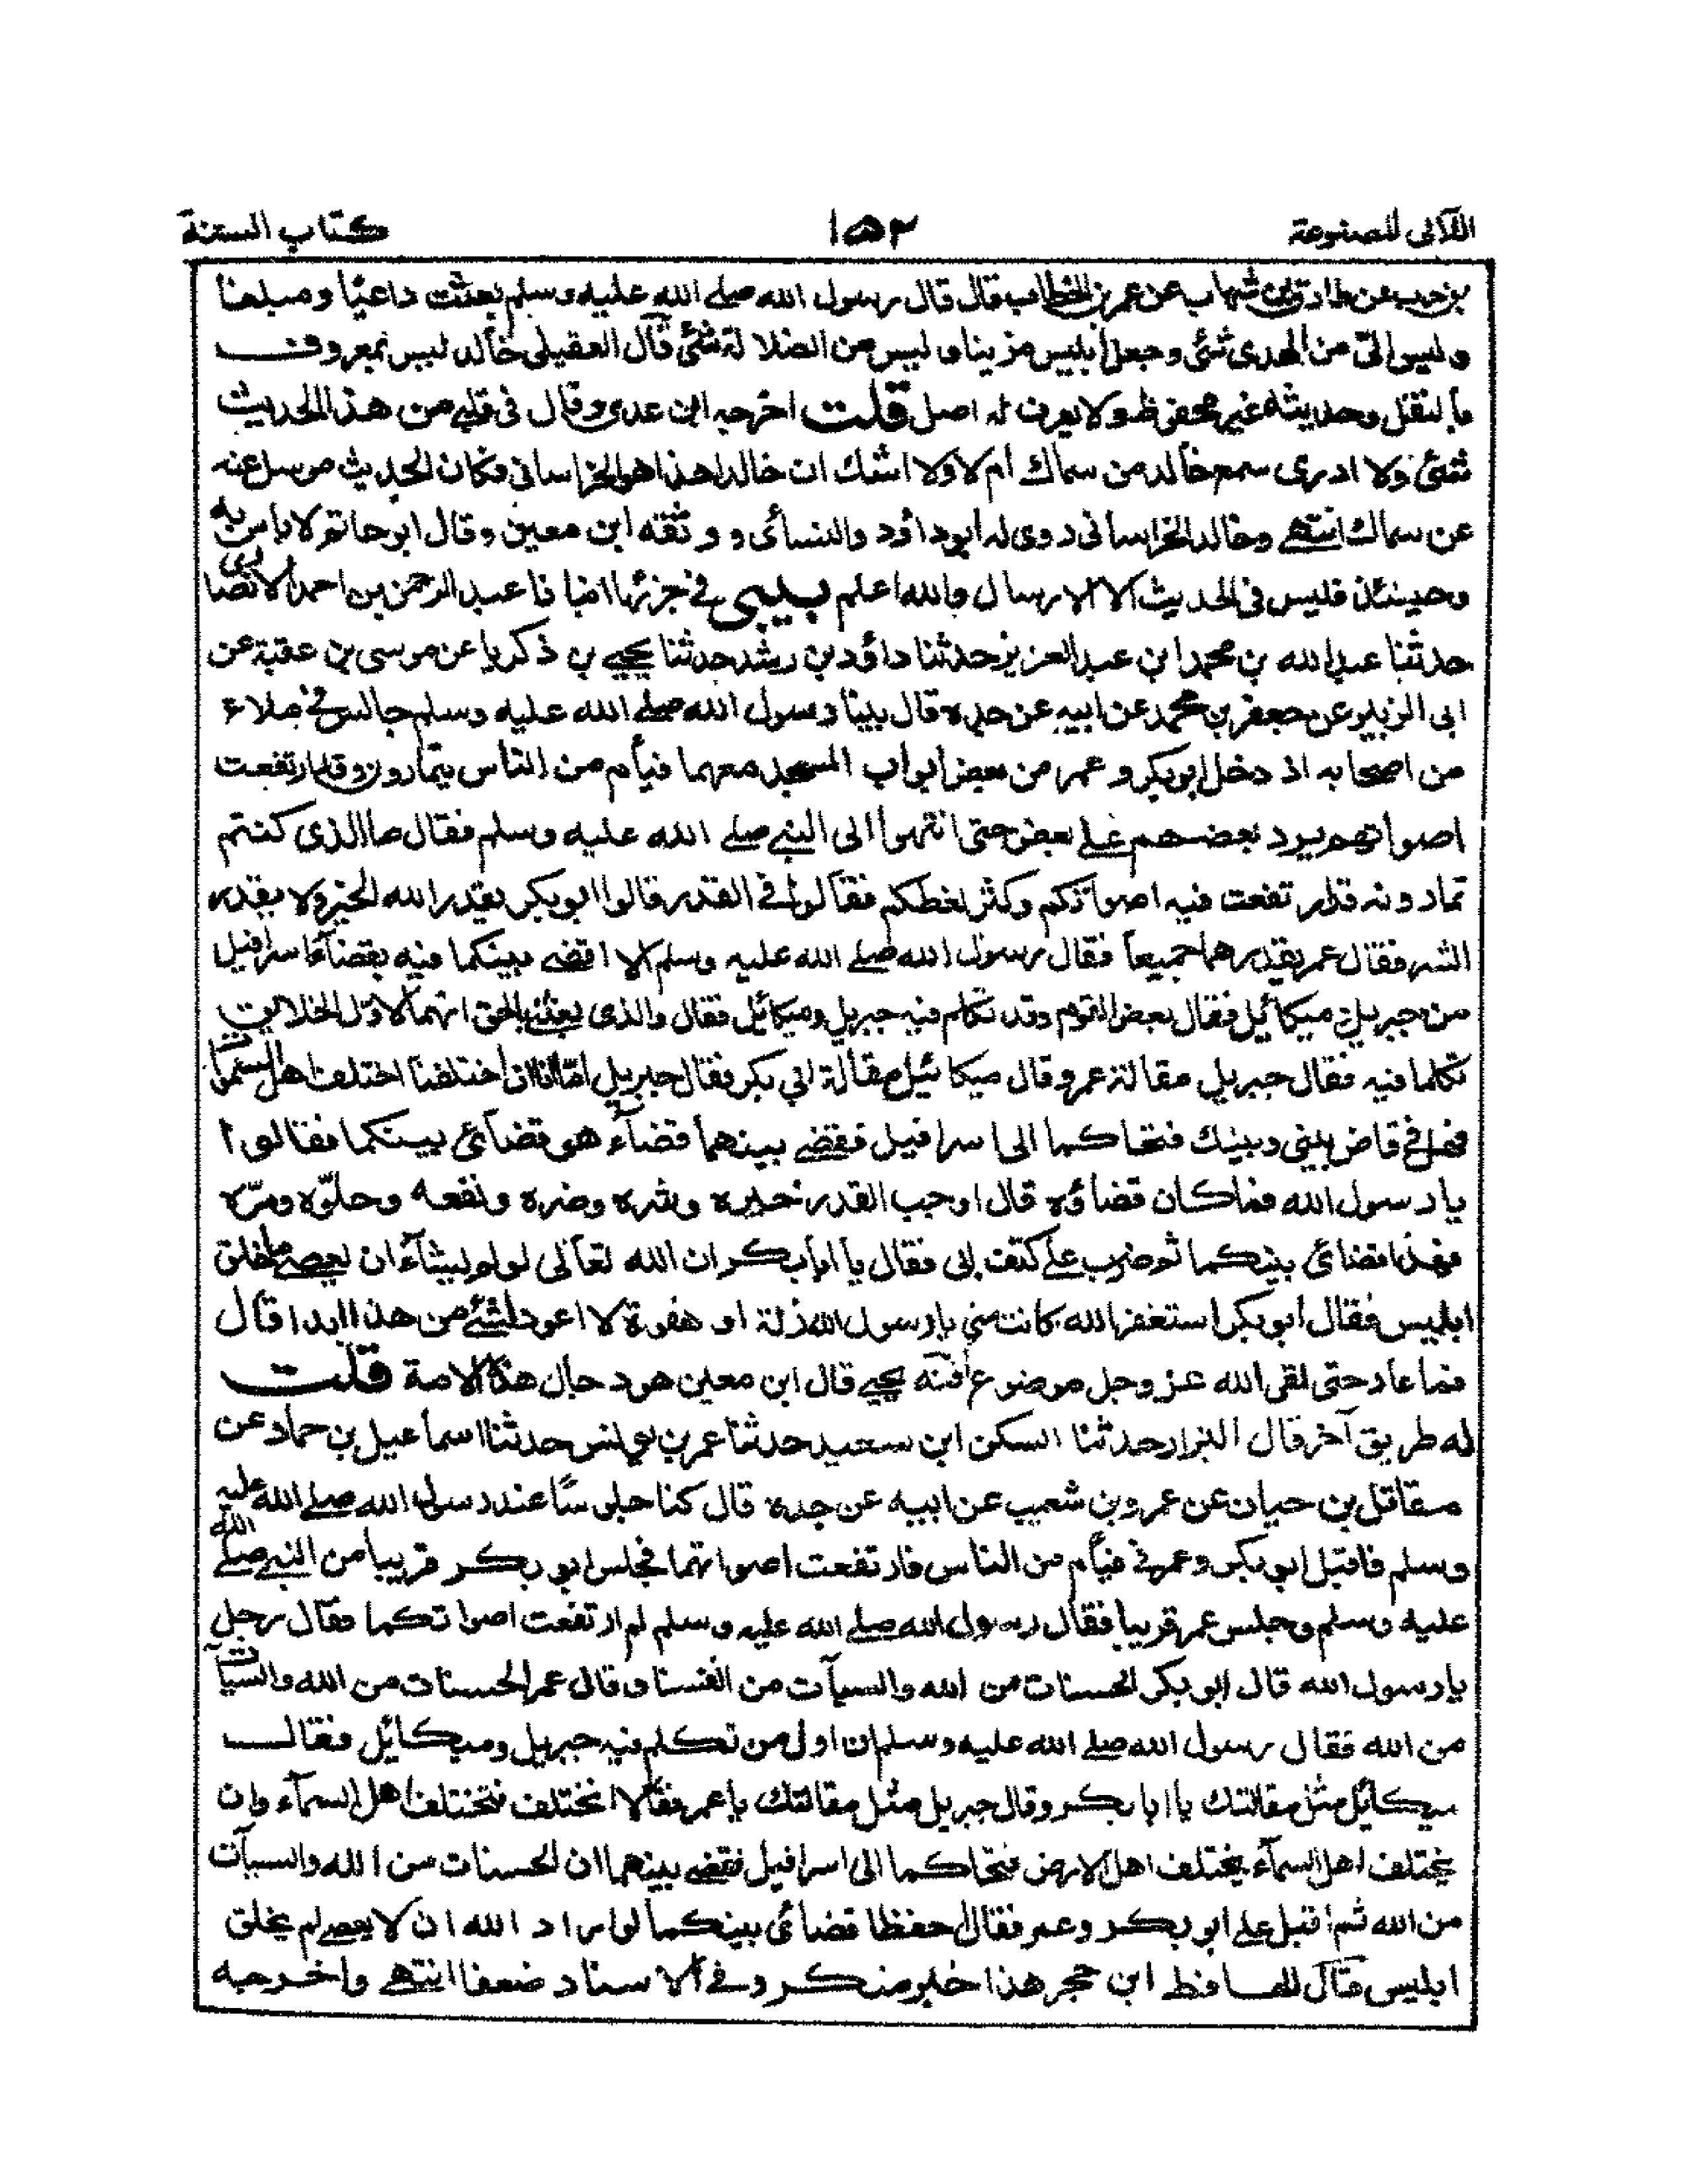 اللآلى المصنوعة
١٥٢
كتاب السنة
بن حرب عن طارق بن شهاب عن عمر بن الخطاب قال قال رسول الله صلے الله عليه وسلم بعثت داعيًا ومبلغا
وليس الىّ من الهدى شئ وجعل ابليس مزينا وليس من الضلالة شئ قال العقيلى خالد ليس بمعروف
بالنقل وحديثه غير محفوظ ولا يعرف له اصل قلت اخرجه ابن عدى وقال فى قلبے من هذا الحديث
شئ ولا ادرى سمع خالد من سماك ام لا ولا اشك ان خالدا هذا هو الخراسانى فكان الحديث مرسل عنه
عن سماك انتهے وخالد الخراسانى روى له ابو داؤد والنسائى و وثقه ابن معين وقال ابو حاتم لا بأس به
وحينئذ فليس فى الحديث الا الارسال والله اعلم بيبى فے جزئها انبانا عبد الرحمن بن احمد الانصارى
حدثنا عبد الله بن محمد ابن عبد العزيز حدثنا داؤد بن رشد حدثنا يحيے بن ذكريا عن موسى بن عقبة عن
ابى الزبير عن جعفر بن محمد عن ابيه عن جده قال بينا رسول الله صلے الله عليه وسلم جالس فے ملاء
من اصحابه اذ دخل ابو بكر وعمر من بعض ابواب المسجد معهما فيأم من الناس يتمارون وقد ارتفعت
اصواتهم يرد بعضهم علے بعض حتى انتهوا الى النبے صلے الله عليه وسلم فقال ما الذى كنتم
تمارونه قد ارتفعت فيه اصواتكم وكثر لغطكم فقالوا فے القدر قالوا ابو بكر يقدر الله الخير ولا يقدر
الشر فقال عمر يقدرهما جميعاً فقال رسول الله صلے الله عليه وسلم الا اقضے بينكما فيه بقضاء اسرافيل
بين جبريل وميكائيل فقال بعض القوم وقد تكلم فيه جبريل وميكائيل فقال والذى بعثنے بالحق انهما لاول الخلايق
تكلما فيه فقال جبريل مقالة عمر وقال ميكائيل مقالة ابى بكر فقال جبريل امّا انا ان اختلفنا اختلف اهل السموات
فهل فے قاض بينى وبينك فتحاكما الى اسرافيل فقضے بينهما قضاء هو قضائى بينكما فقالوا
يا رسول الله فما كان قضاؤه قال اوجب القدر خيره وشره وضره ونفعه وحلوّه ومرّه
فهذا قضائى بينكما ثم ضرب علے كتف ابى فقال يا ابا بكر ان الله تعالى لو لم يشاء ان يعصے ما خلق
ابليس فقال ابو بكر استغفر الله كانت منى يا رسول الله زلة او هفوة لا اعود لشئ من هذا ابدا قال
فما عاد حتى لقى الله عز وجل موضوع آفته يحيے قال ابن معين هو دجال هذه الامة قلت
له طريق آخر قال البزار حدثنا السكن ابن سعيد حدثنا عمر بن يونس حدثنا اسماعيل بن حماد عن
مقاتل بن حيان عن عمرو بن شعيب عن ابيه عن جده قال كنا جلوسًا عند رسول الله صلے الله عليه
وسلم فاقبل ابو بكر وعمر فے فيأم من الناس فارتفعت اصواتهما فجلس ابو بكر قريبا من النبے صلے الله
عليه وسلم وجلس عمر قريبا فقال رسول الله صلے الله عليه وسلم لم ارتفعت اصواتكما فقال رجل
يا رسول الله قال ابو بكر الحسنات من الله والسيآت من انفسنا وقال عمر الحسنات من الله والسيآت
من الله فقال رسول الله صلے الله عليه وسلم ان اول من تكلم فيه جبريل وميكائيل فقال
ميكائيل مثل مقالتك يا ابا بكر وقال جبريل مثل مقالتك يا عمر فقالا انختلف فتختلف اهل السمآء وان
يختلف اهل السمآء يختلف اهل الارض فتحاكما الى اسرافيل فقضے بينهما ان الحسنات من الله والسيآت
من الله ثم اقبل علے ابو بكر وعمر فقال احفظا قضائى بينكما لو اراد الله ان لا يعصے لم يخلق
ابليس قال الحافظ ابن حجر هذا خبر منكر وفے الاسناد ضعفا انتهے واخرجه